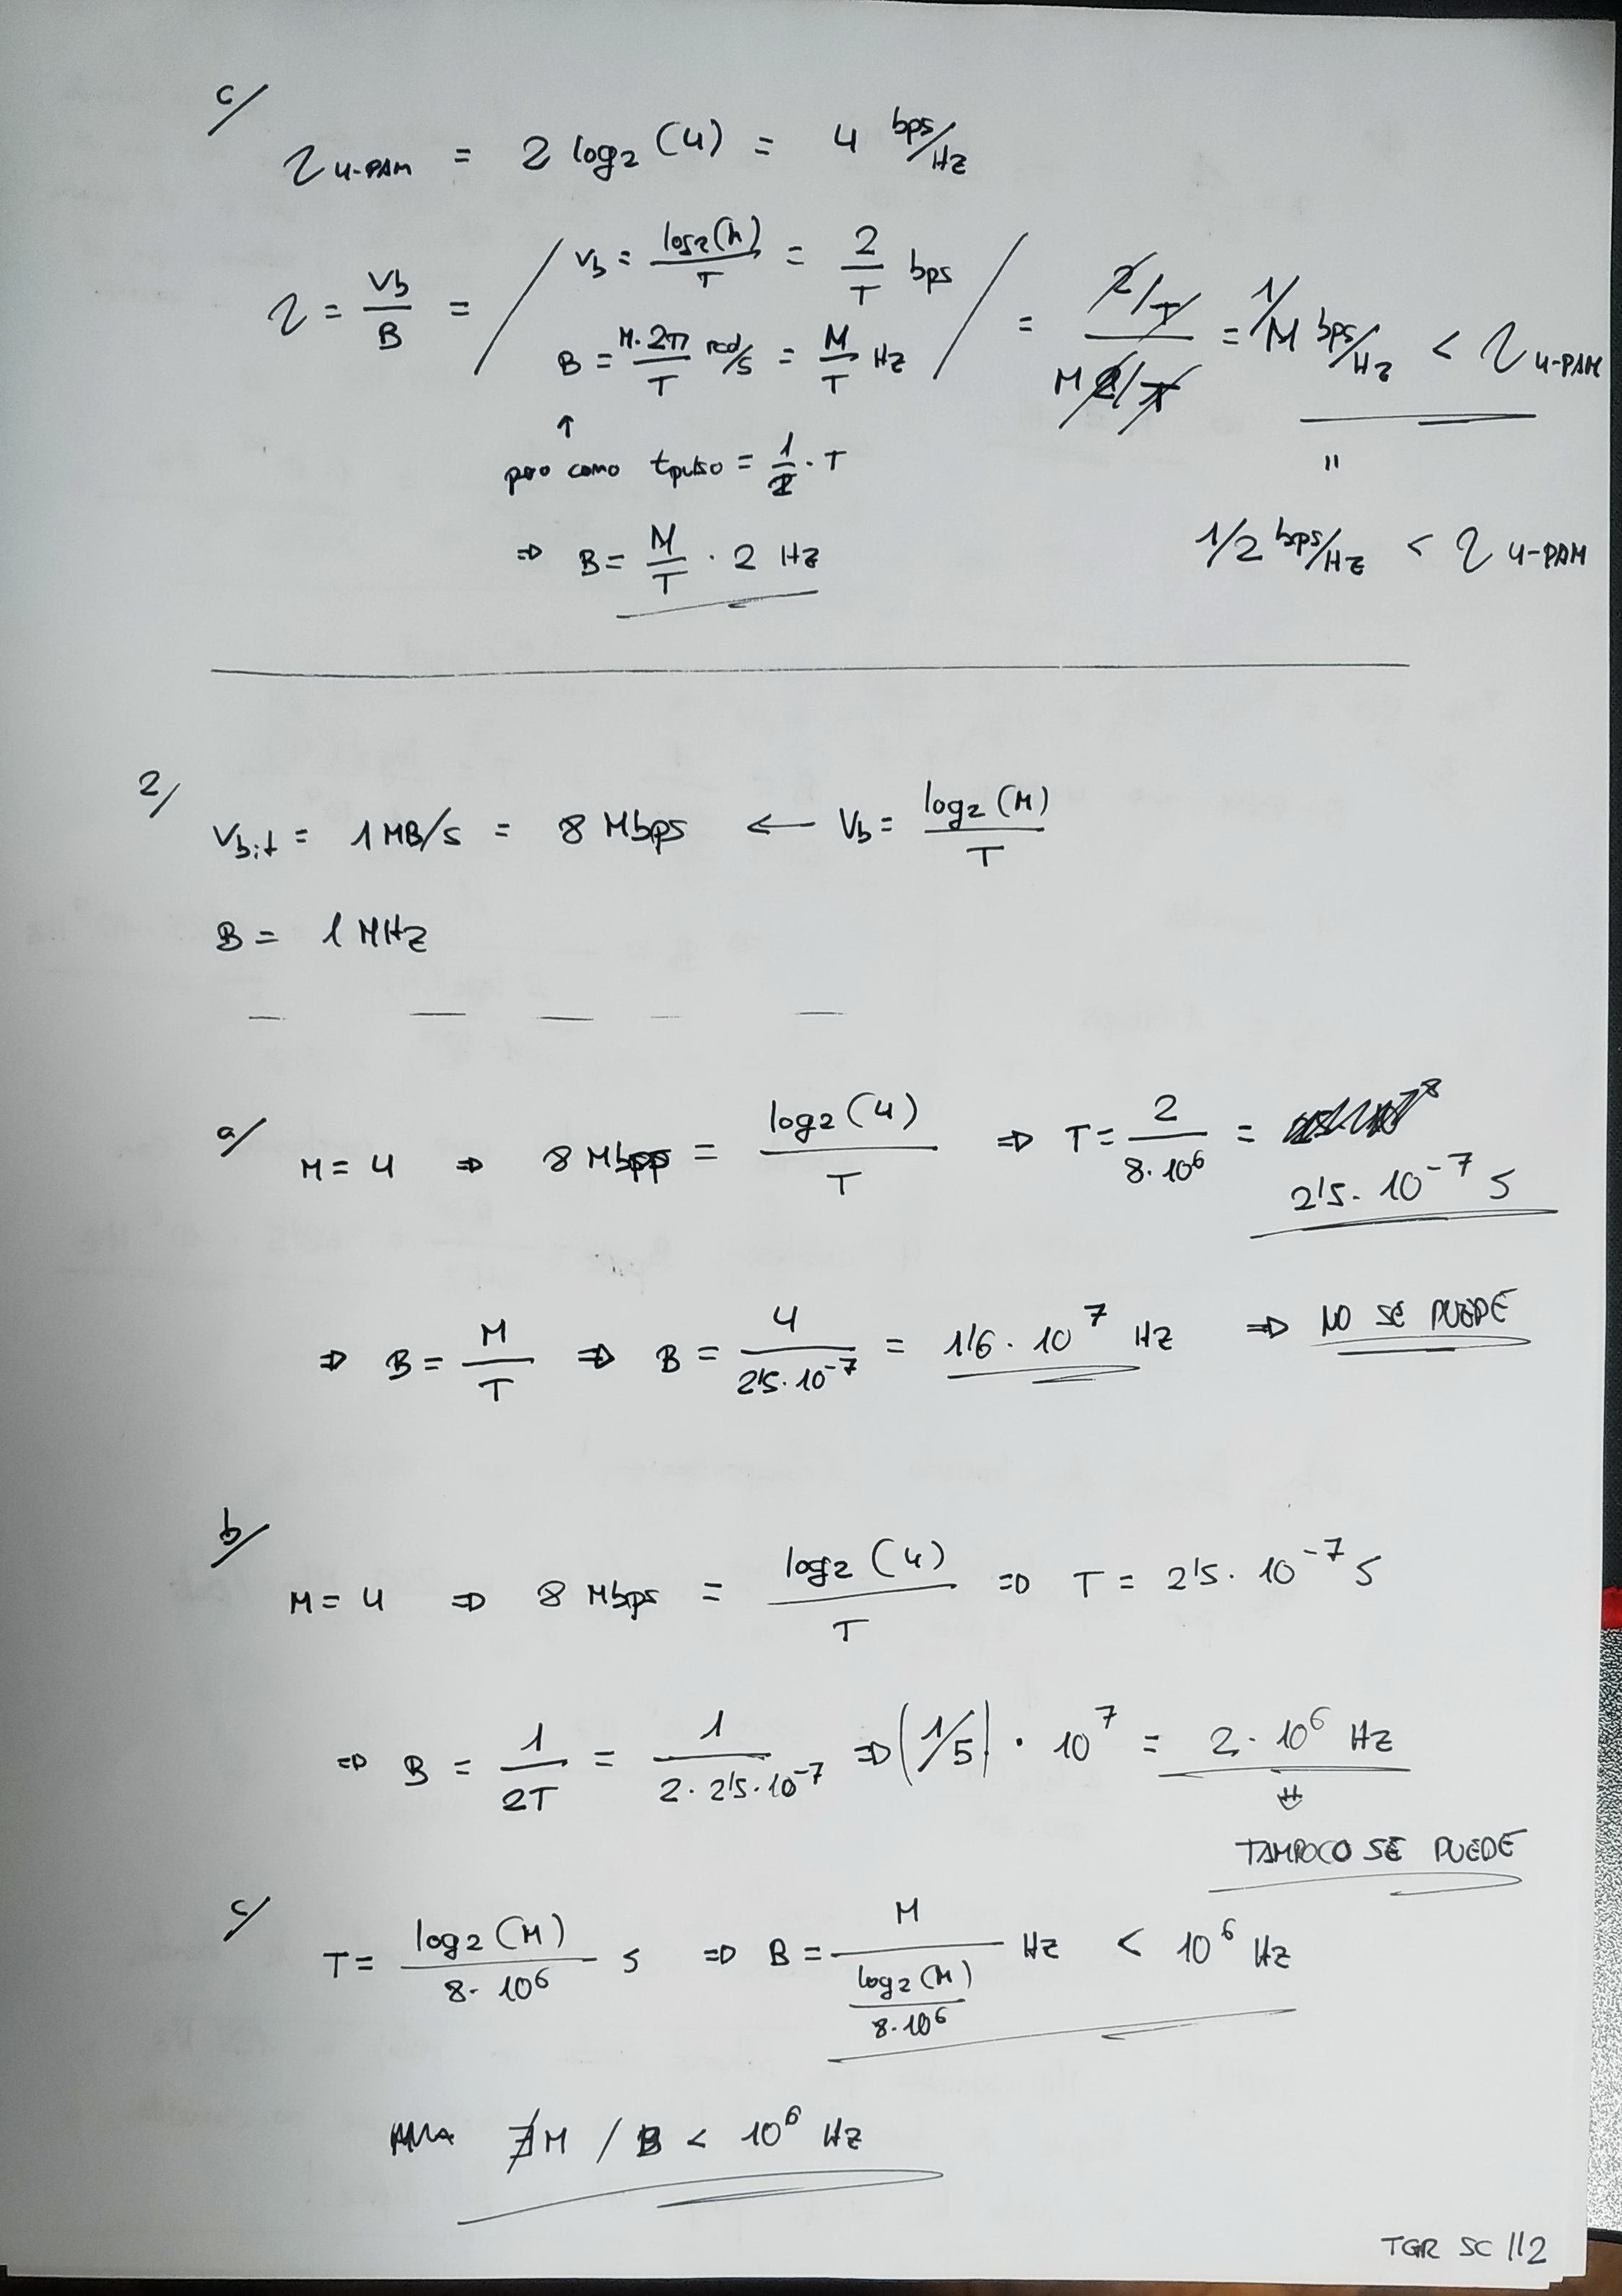 c/
η 4-PAM = 2 log2 (4) = 4 bps/Hz
η = Vb/B = / Vb = log2(M)/T = 2/T bps
B = M·2π/T rad/s = M/T Hz / = 2/T / M2/T = 1/M bps/Hz < η 4-PAM
↑
pero como tpulso = 1/2 · T
"
⇒ B = M/T · 2 Hz
1/2 bps/Hz < η 4-PAM
2/
Vbit = 1 MB/s = 8 Mbps ← Vb = log2 (M)/T
B = 1 MHz
a/
M = 4 ⇒ 8 Mbps = log2 (4)/T ⇒ T = 2/8·10^6 =
2'5 · 10^-7 s
⇒ B = M/T ⇒ B = 4/2'5·10^-7 = 1'6 · 10^7 Hz ⇒ NO SE PUEDE
b/
M = 4 ⇒ 8 Mbps = log2 (4)/T ⇒ T = 2'5 · 10^-7 s
⇒ B = 1/2T = 1/2·2'5·10^-7 ⇒ (1/5) · 10^7 = 2 · 10^6 Hz
⇓
TAMPOCO SE PUEDE
c/
T = log2 (M)/8·10^6 s ⇒ B = M/(log2 (M)/8·10^6) Hz < 10^6 Hz
∄ M / B < 10^6 Hz
TGR SC 112